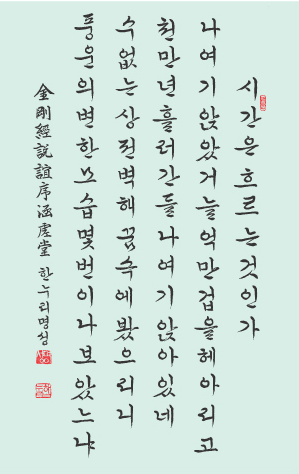 시간은흐르는것인가
나여기앉았거늘억만겁을헤아리고
천만년흘러간들나여기앉아있네
수없는상전벽해꿈속에봤으리니
풍운의변한모습몇번이나보았느냐
金剛經說誼序涵虛堂 한누리